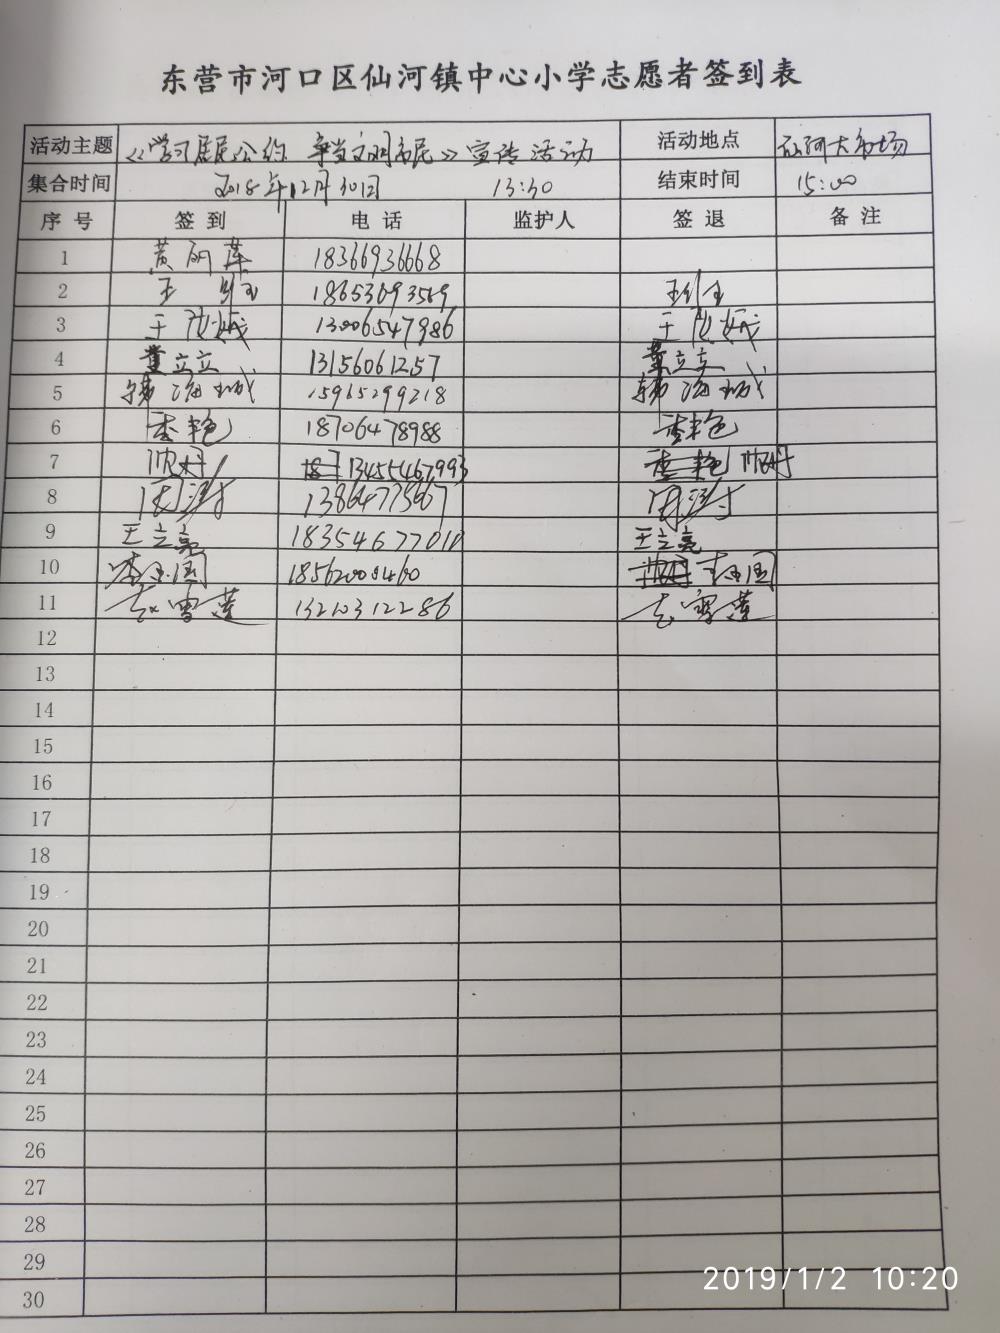 东营市河口区仙河镇中心小学志愿者签到表
活动主题 《学习居民公约 争当文明市民》宣传活动 活动地点 仙河大市场
集合时间 2018年12月30日 13:30 结束时间 15:00
序号 签到 电话 监护人 签退 备注
1 黄丽萍 18366936668
2 王 18653693569 王
3 于 13006547986 于
4 董立立 13156061257 董立立
5 15965299218
6 李艳 18706478988 李艳
7 帅丹 13455467993 帅丹
8 周 13864773567 周
9 王立亮 18354677010 王立亮
10 李国 18562000460 李国
11 袁雪莲 13210312286 袁雪莲
12
13
14
15
16
17
18
19
20
21
22
23
24
25
26
27
28
29
30
2019/1/2 10:20